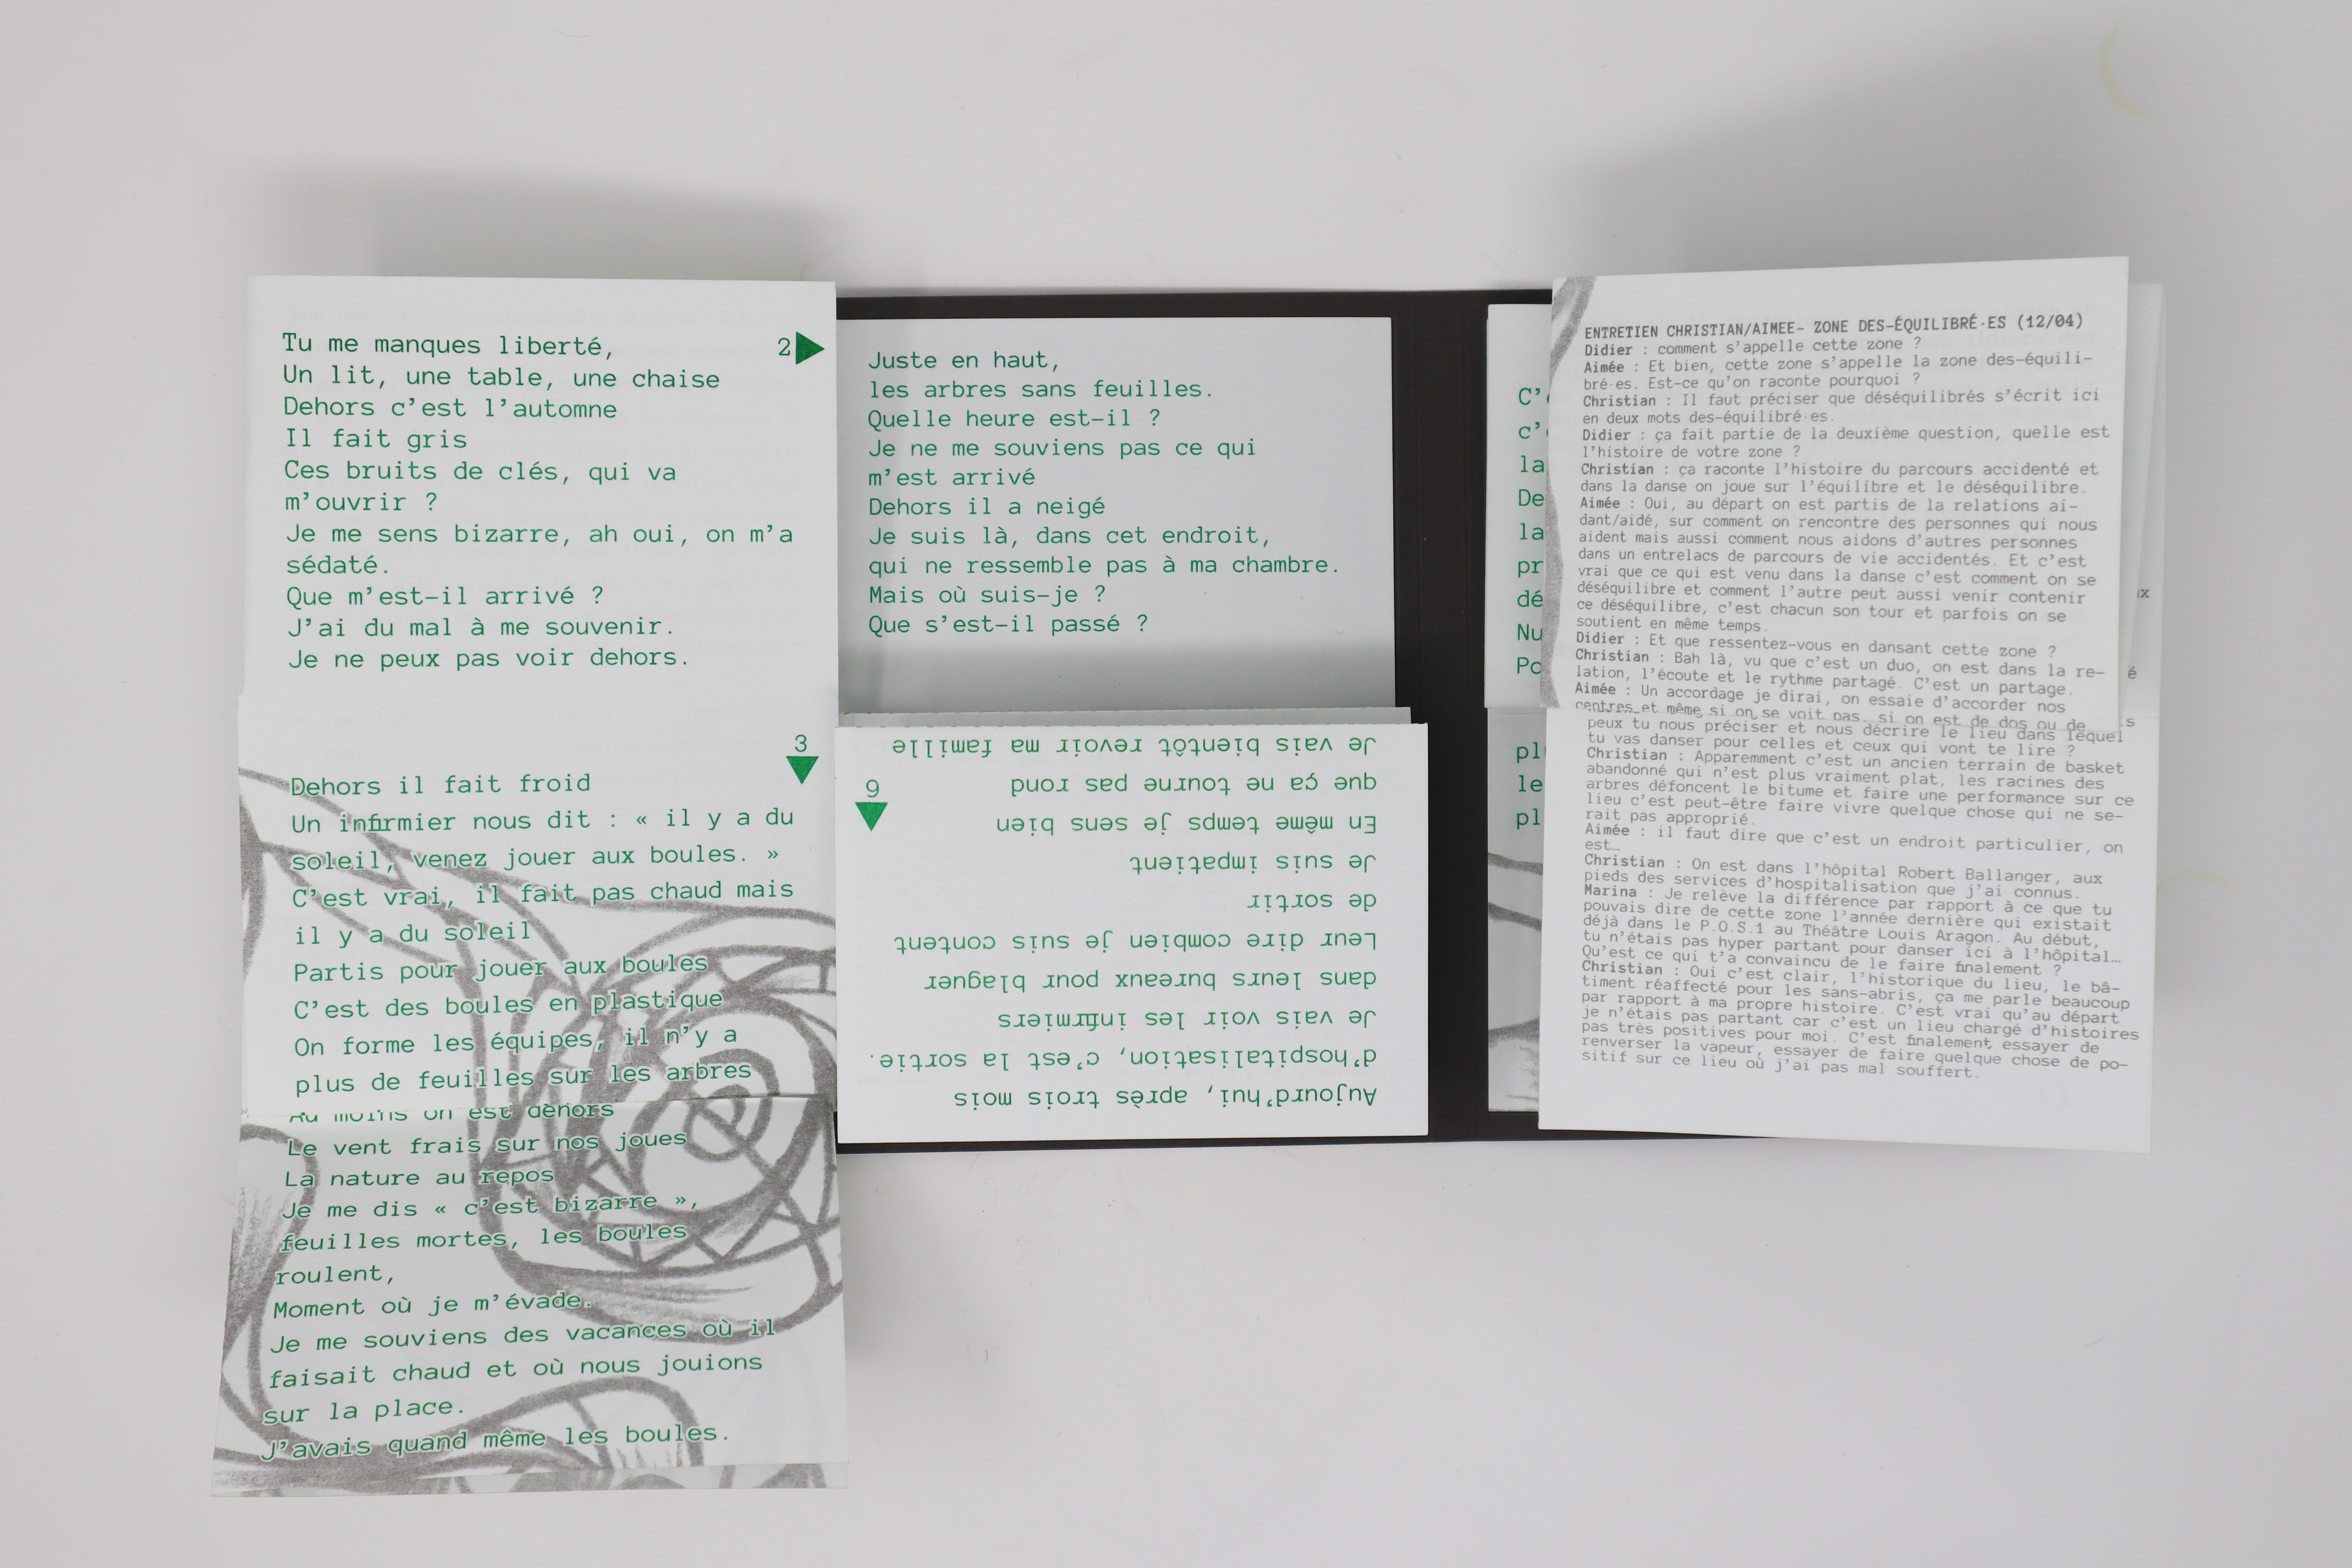 Tu me manques liberté,
2
Un lit, une table, une chaise
Dehors c'est l'automne
Il fait gris
Ces bruits de clés, qui va
m'ouvrir ?
Je me sens bizarre, ah oui, on m'a
sédaté.
Que m'est-il arrivé ?
J'ai du mal à me souvenir.
Je ne peux pas voir dehors.
3
Dehors il fait froid
Un infirmier nous dit : « il y a du
soleil, venez jouer aux boules. »
C'est vrai, il fait pas chaud mais
il y a du soleil
Partis pour jouer aux boules
C'est des boules en plastique
On forme les équipes, il n'y a
plus de feuilles sur les arbres
Au moins on est dehors
Le vent frais sur nos joues
La nature au repos
Je me dis « c'est bizarre »,
feuilles mortes, les boules
roulent,
Moment où je m'évade.
Je me souviens des vacances où il
faisait chaud et où nous jouions
sur la place.
J'avais quand même les boules.
Juste en haut,
les arbres sans feuilles.
Quelle heure est-il ?
Je ne me souviens pas ce qui
m'est arrivé
Dehors il a neigé
Je suis là, dans cet endroit,
qui ne ressemble pas à ma chambre.
Mais où suis-je ?
Que s'est-il passé ?
Aujourd'hui, après trois mois
d'hospitalisation, c'est la sortie.
Je vais voir les infirmiers
dans leurs bureaux pour blaguer
Leur dire combien je suis content
de sortir
Je suis impatient
En même temps je sens bien
que ça ne tourne pas rond
Je vais bientôt revoir ma famille
9
C'
c'
la
De
la
pr
dé
Nu
Po
pl
le
pl
ENTRETIEN CHRISTIAN/AIMEE- ZONE DES-ÉQUILIBRÉ·ES (12/04)
Didier : comment s'appelle cette zone ?
Aimée : Et bien, cette zone s'appelle la zone des-équili-
bré·es. Est-ce qu'on raconte pourquoi ?
Christian : Il faut préciser que déséquilibrés s'écrit ici
en deux mots des-équilibré·es.
Didier : ça fait partie de la deuxième question, quelle est
l'histoire de votre zone ?
Christian : ça raconte l'histoire du parcours accidenté et
dans la danse on joue sur l'équilibre et le déséquilibre.
Aimée : Oui, au départ on est partis de la relations ai-
dant/aidé, sur comment on rencontre des personnes qui nous
aident mais aussi comment nous aidons d'autres personnes
dans un entrelacs de parcours de vie accidentés. Et c'est
vrai que ce qui est venu dans la danse c'est comment on se
déséquilibre et comment l'autre peut aussi venir contenir
ce déséquilibre, c'est chacun son tour et parfois on se
soutient en même temps.
Didier : Et que ressentez-vous en dansant cette zone ?
Christian : Bah là, vu que c'est un duo, on est dans la re-
lation, l'écoute et le rythme partagé. C'est un partage.
Aimée : Un accordage je dirai, on essaie d'accorder nos
centres et même si on se voit pas, si on est de dos ou de
peux tu nous préciser et nous décrire le lieu dans lequel
tu vas danser pour celles et ceux qui vont te lire ?
Christian : Apparemment c'est un ancien terrain de basket
abandonné qui n'est plus vraiment plat, les racines des
arbres défoncent le bitume et faire une performance sur ce
lieu c'est peut-être faire vivre quelque chose qui ne se-
rait pas approprié.
Aimée : il faut dire que c'est un endroit particulier, on
est…
Christian : On est dans l'hôpital Robert Ballanger, aux
pieds des services d'hospitalisation que j'ai connus.
Marina : Je relève la différence par rapport à ce que tu
pouvais dire de cette zone l'année dernière qui existait
déjà dans le P.O.S.1 au Théâtre Louis Aragon. Au début,
tu n'étais pas hyper partant pour danser ici à l'hôpital…
Qu'est ce qui t'a convaincu de le faire finalement ?
Christian : Oui c'est clair, l'historique du lieu, le bâ-
timent réaffecté pour les sans-abris, ça me parle beaucoup
par rapport à ma propre histoire. C'est vrai qu'au départ
je n'étais pas partant car c'est un lieu chargé d'histoires
pas très positives pour moi. C'est finalement essayer de
renverser la vapeur, essayer de faire quelque chose de po-
sitif sur ce lieu où j'ai pas mal souffert.